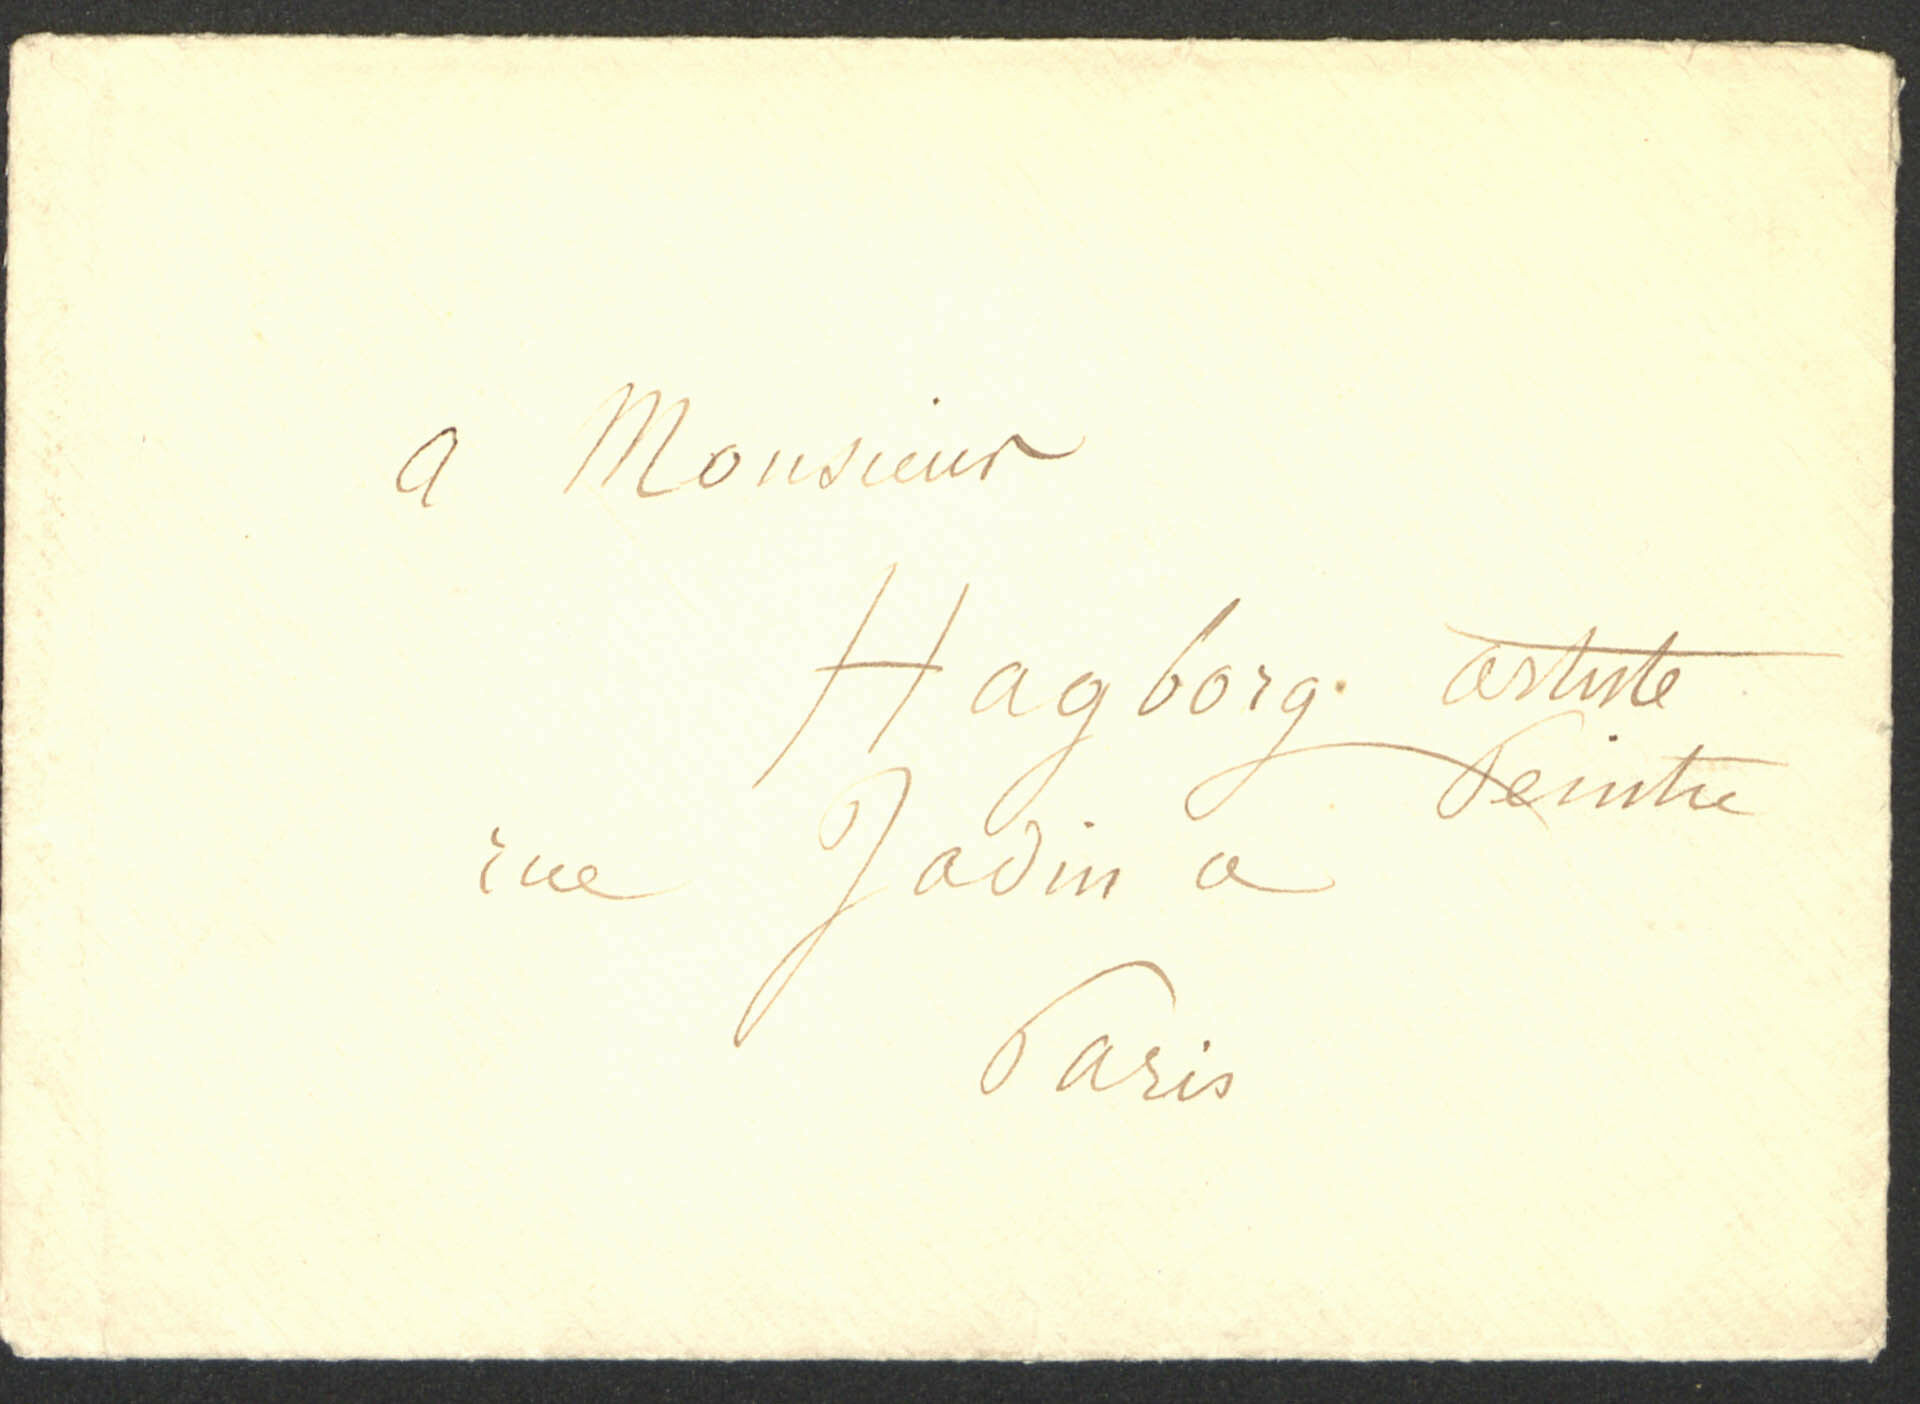 a Monsieur
Hagborg. artiste
Peintre
rue Jadin a
Paris